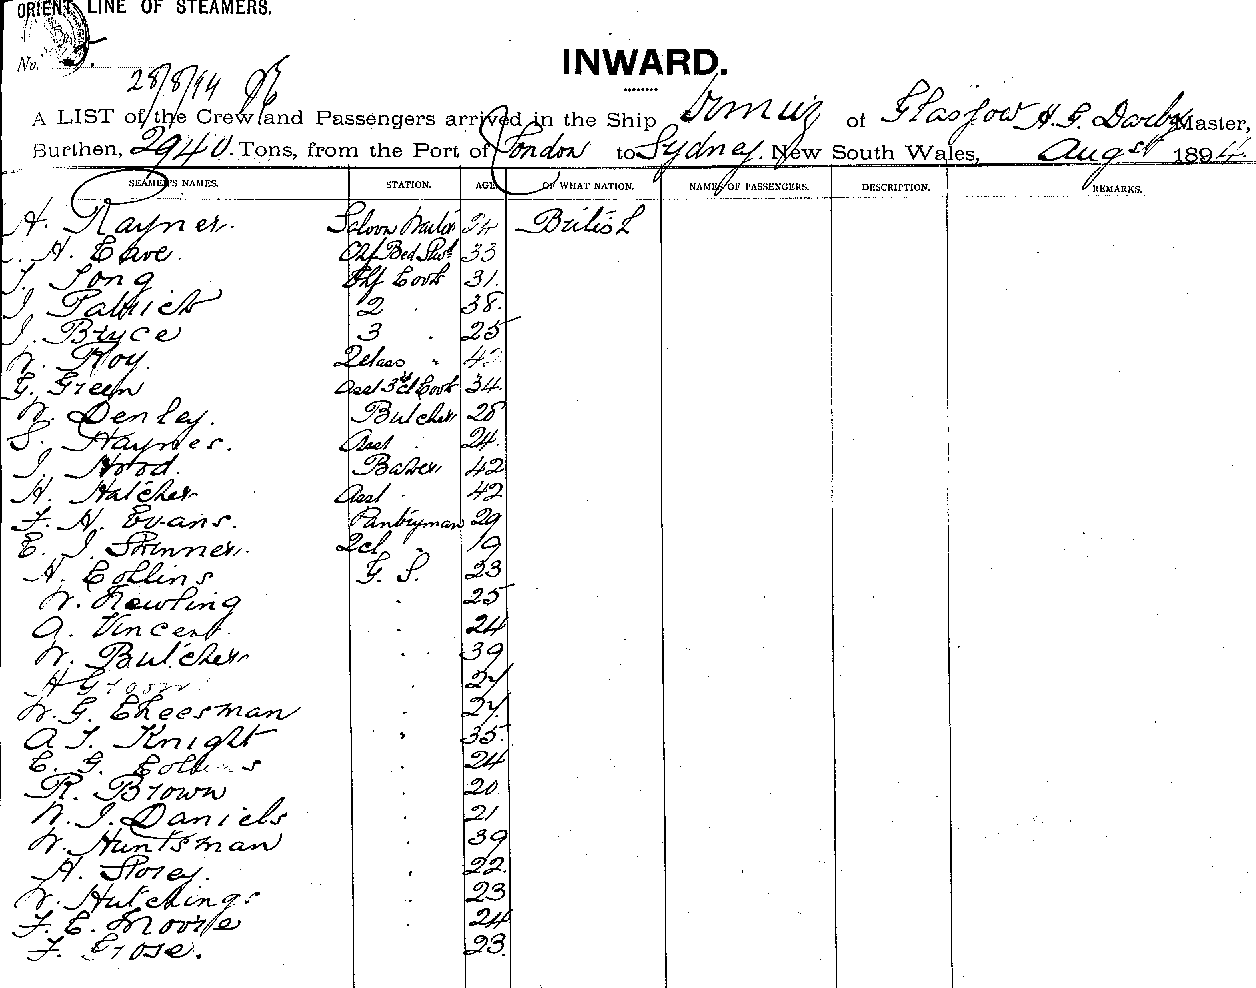 ORIENT LINE OF STEAMERS.
No.
INWARD.
28/8/94
A LIST of the Crew and Passengers arrived in the Ship Ormuz of Glasgow H. G. Darby Master,
Burthen, 2940 Tons, from the Port of London to Sydney. New South Wales, Augst 1894
SEAMEN'S NAMES. STATION. AGE OF WHAT NATION. NAMES OF PASSENGERS. DESCRIPTION. REMARKS.
H. Rayner. Saloon Waiter 24 British
H. Eave. Chf Bed Stwd 33
Long Chf Cook 31.
J. Patrick 2 " 38.
J. Bryce 3 " 25
W. Roy. 2 class "
G. Green Asst 3rd cl Cook 34
W. Denley. Butcher 28
S. Haynes. Asst " 24
J. Wood. Baker 42
H. Hatcher Asst " 42
F. H. Evans. Pantryman 29
E. J. Skinner. 2 cl " 19
H. Collins G. S. 23
W. Newling " 25
A. Vincent " 24
W. Butcher " 39
H " 27
W. G. Cheesman " 27
A J. Knight " 35
E. G. Collins " 24
R. Brown " 20
W. J. Daniels " 21
W. Huntsman " 39
H. Storey. " 22
W. Hutchings " 23
F. E. Moore " 24
F. Grose. 23